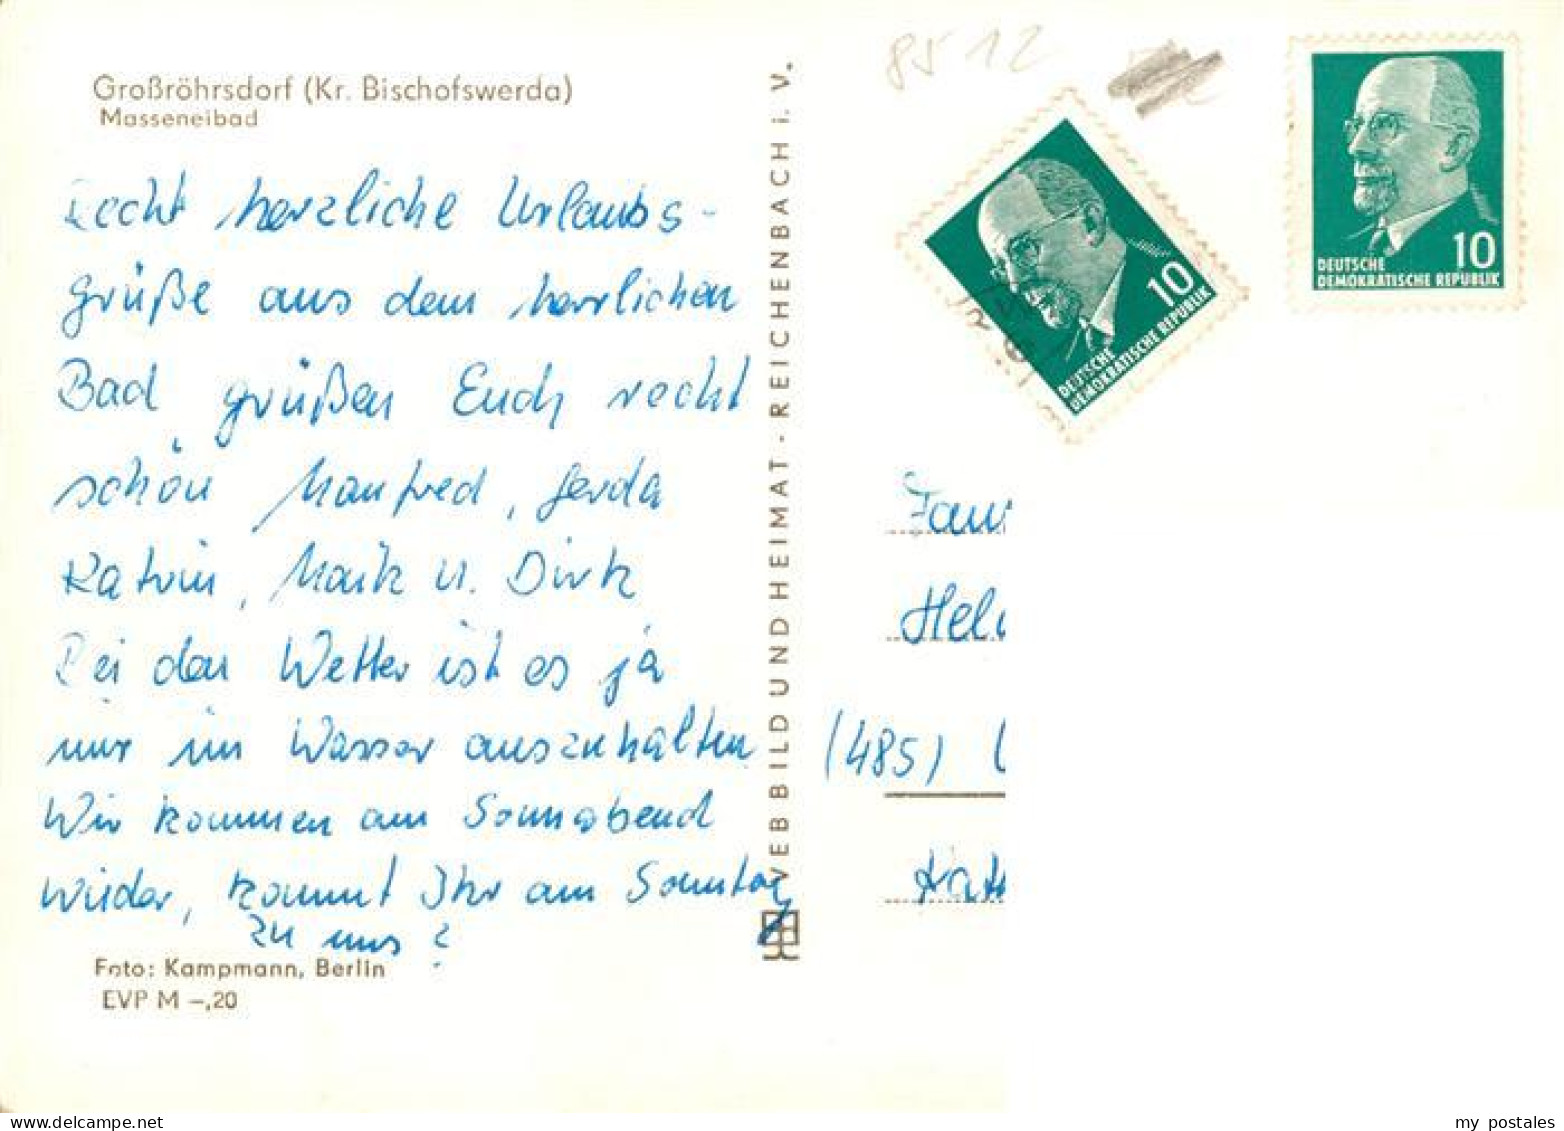 Großröhrsdorf (Kr. Bischofswerda)
Masseneibad
Recht herzliche Urlaubs-
grüße aus dem herrlichen
Bad grüßen Euch recht
schön Manfred, Gerda
Katrin, Maik u. Dirk
Bei dem Wetter ist es ja
nur im Wasser auszuhalten
Wir kommen am Sonnabend
wieder, kommt Ihr am Sonntag
zu uns?
Foto: Kampmann, Berlin
EVP M –,20
VEB BILD UND HEIMAT · REICHENBACH i. V.
8512
10
DEUTSCHE
DEMOKRATISCHE REPUBLIK
10
DEUTSCHE
DEMOKRATISCHE REPUBLIK
(485)
my postales